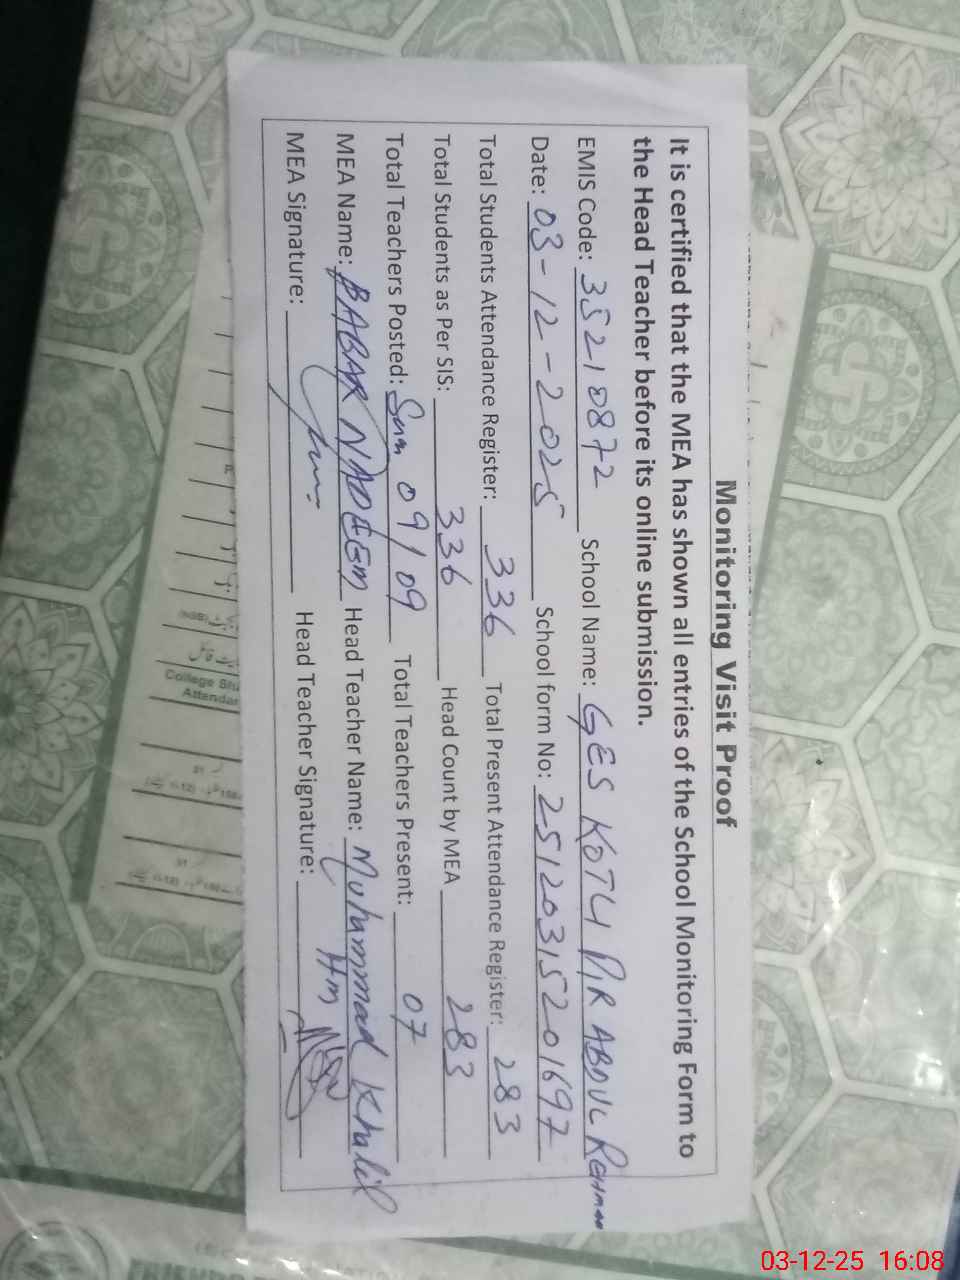 Monitoring Visit Proof
It is certified that the MEA has shown all entries of the School Monitoring Form to
the Head Teacher before its online submission.
EMIS Code: 35210872 School Name: GES KOTLI PIR ABDUL REHMAN
Date: 03-12-2025 School form No: 25120315201697
Total Students Attendance Register: 336 Total Present Attendance Register: 283
Total Students as Per SIS: 336 Head Count by MEA 283
Total Teachers Posted: 09/09 Total Teachers Present: 07
MEA Name: BABAR NADEEM Head Teacher Name: Muhammad Khalil
MEA Signature: Head Teacher Signature: HM
College
Attendan
03-12-25 16:08